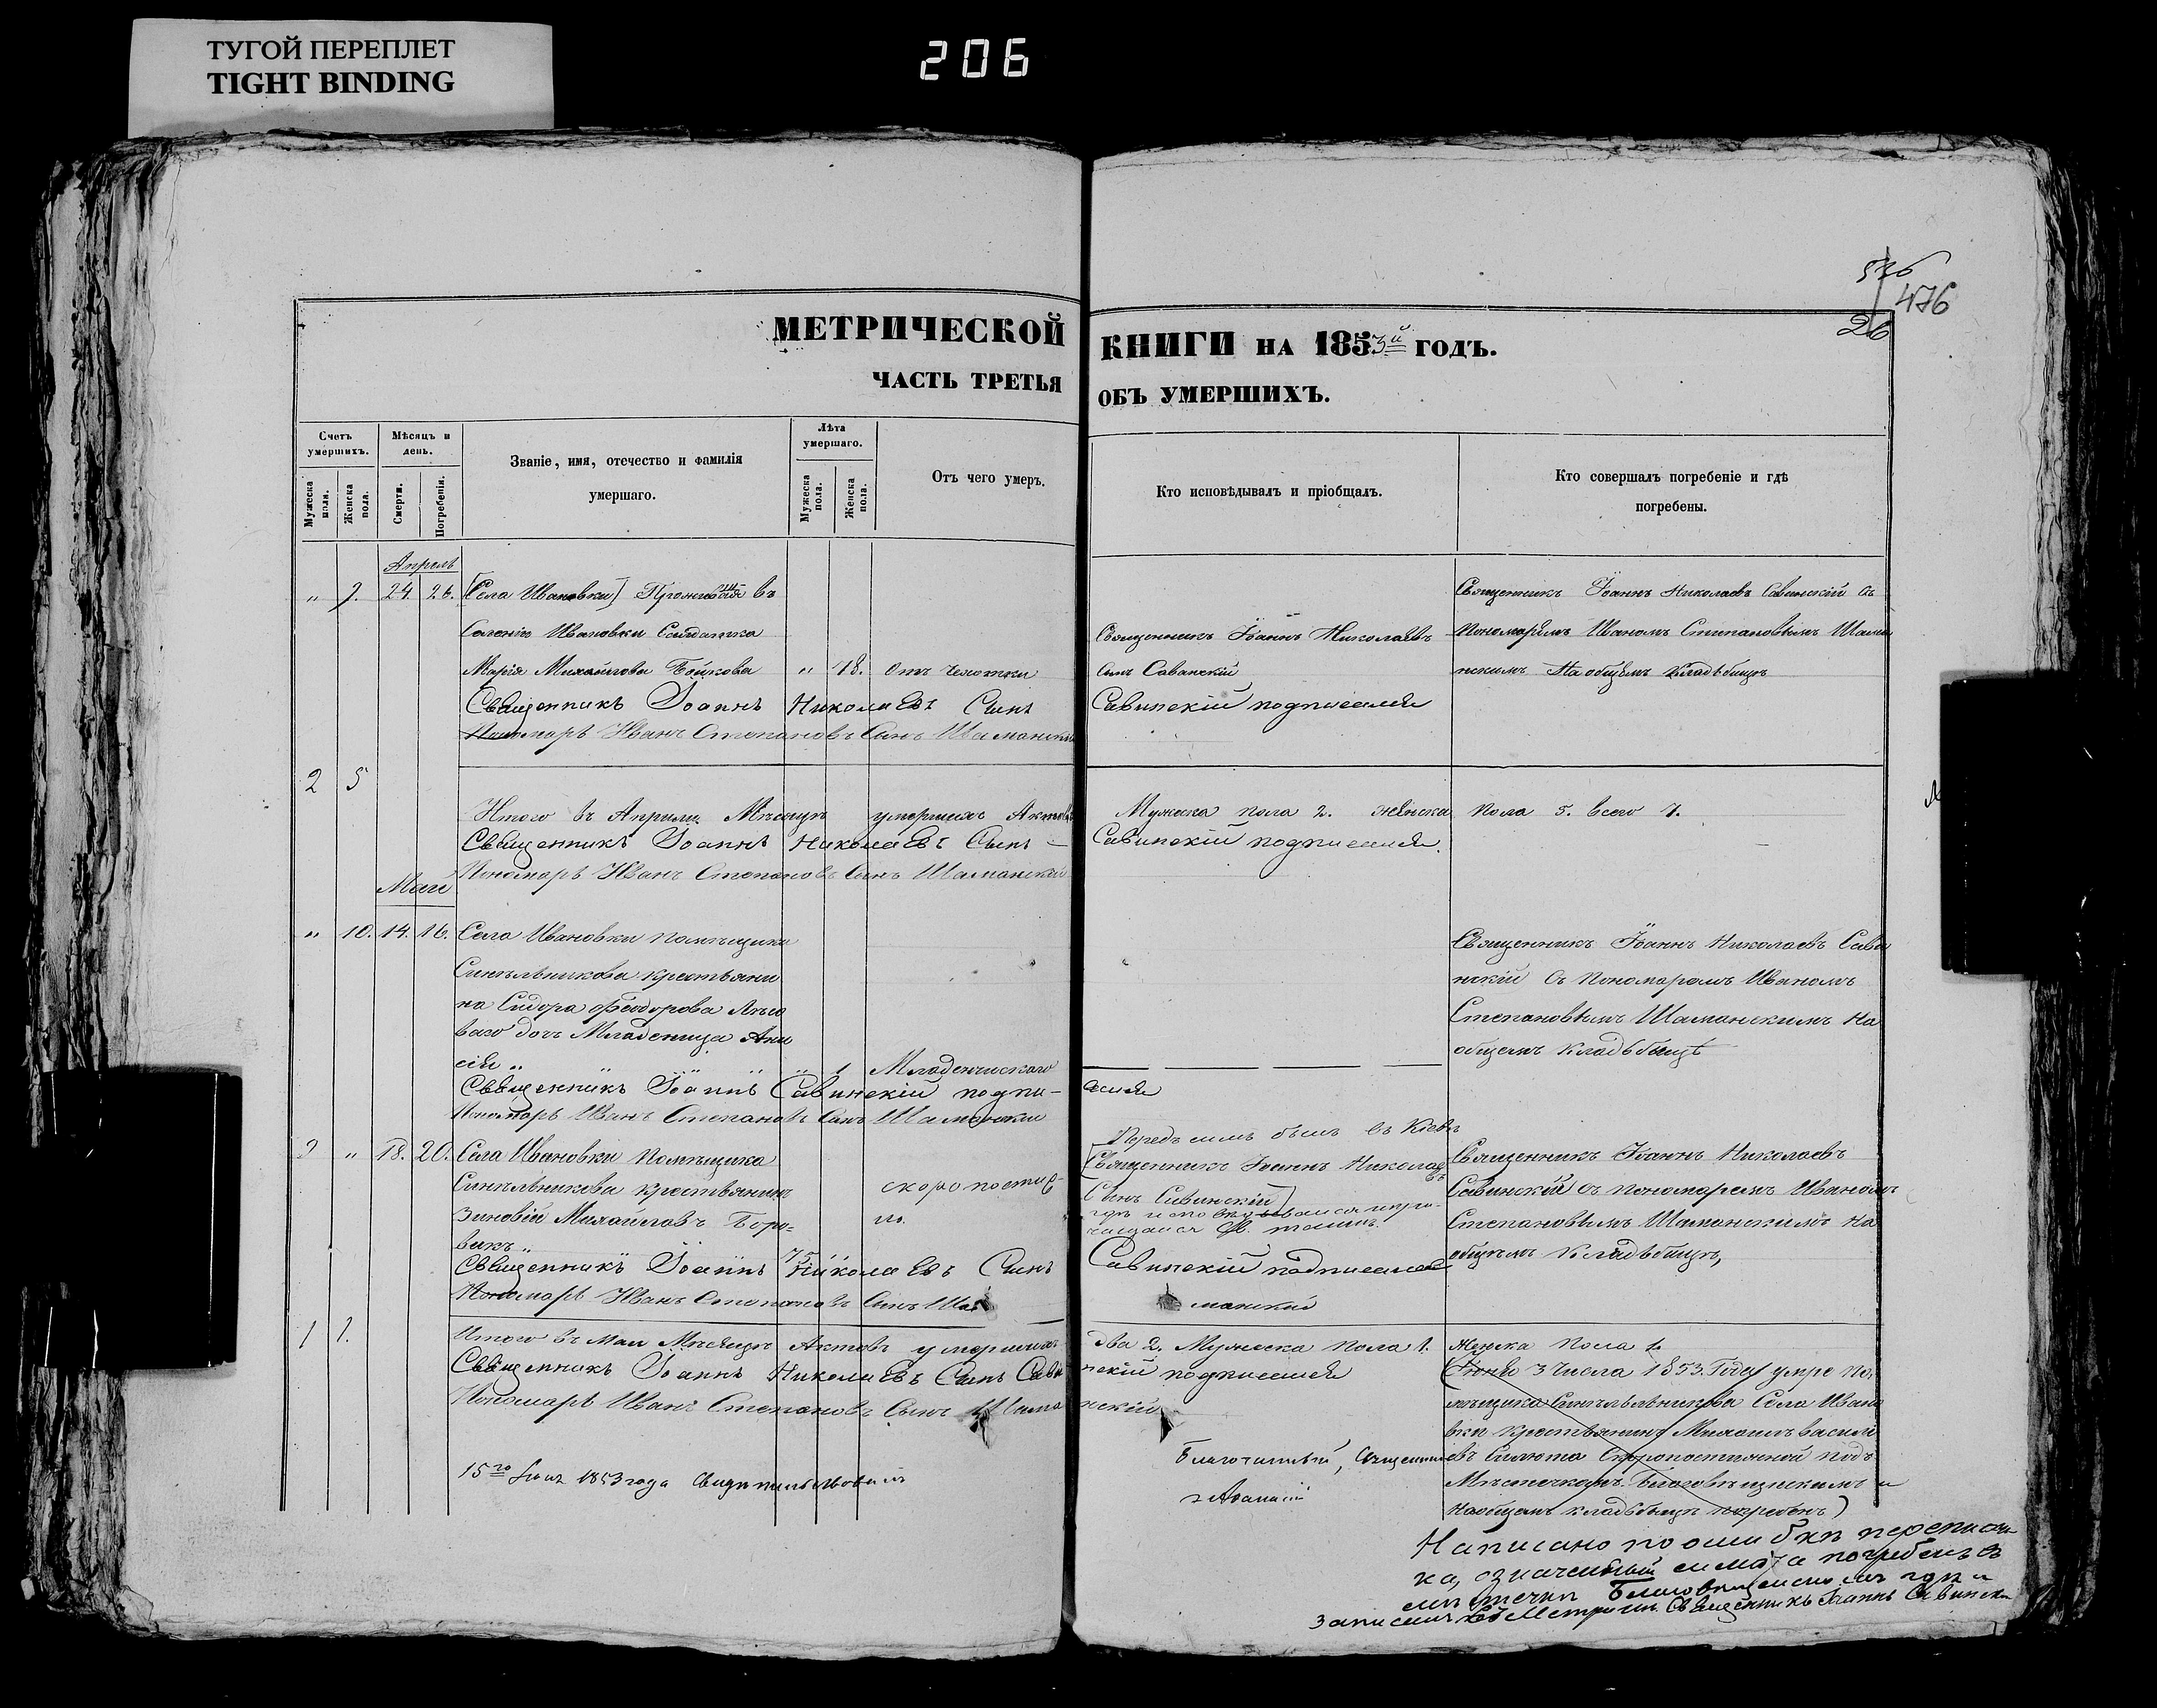 ТУГОЙ ПЕРЕПЛЕТ
TIGHT BINDING
206
476
26
МЕТРИЧЕСКОЙ КНИГИ НА 1853й ГОДЪ.
ЧАСТЬ ТРЕТЬЯ ОБЪ УМЕРШИХЪ.
Счетъ умершихъ.
Мужеска пола.
Женска пола.
Мѣсяцъ и день.
Смерти.
Погребенія.
Званіе, имя, отечество и фамилія умершаго.
Лѣта умершаго.
Мужеска пола.
Женска пола.
Отъ чего умеръ.
Кто исповѣдывалъ и пріобщалъ.
Кто совершалъ погребеніе и гдѣ погребены.
Апрель
24. 26. [Села Ивановки] въ
Селеніи Ивановки Солдатка
Марія Михайлова Бойкова " 18. Отъ чехотки
Священникъ Іоаннъ Николаевъ
Сынъ Савинскій
Священникъ Іоаннъ Николаевъ Савинскій съ
Пономарёмъ Иваномъ Степановымъ Шама
нскимъ На общемъ Кладьбищѣ
Священникъ Іоаннъ Николаевъ Сынъ Савинскій подписался
Пономарь Иванъ Степановъ Сынъ Шаманскій
2 5
Итого въ Априли Мѣсяцѣ умершихъ Актовъ Мужеска пола 2. женска пола 5. всего 7.
Священникъ Іоаннъ Николаевъ Сынъ Савинскій подписался.
Пономарь Иванъ Степановъ Сынъ Шаманскій
Май
" 10. 14. 16. Села Ивановки помѣщика
Синѣльникова крестьяни
на Сидора Феодорова
ваго дочь Младеница Ани
сія " " 1 Младенческаго
Священникъ Іоаннъ Николаевъ Сави
нскій съ Пономаромъ Иваномъ
Степановымъ Шаманскимъ На
общемъ Кладьбищѣ
Священникъ Іоаннъ Савинскій подписался
Пономарь Иванъ Степановъ Сынъ Шаманскій
3 " 18. 20. Села Ивановки Помѣщика
Синѣльникова крестьянинъ
Зиновій Михайловъ Боро=
викъ " 75
скоропостиж
но.
Передъ симъ былъ въ Кіевѣ
[Священникъ Іоаннъ Николаевъ
Сынъ Савинскій]
гдѣ исповѣдывался и прі
чащался Св. таинъ.
Священникъ Іоаннъ Николаевъ
Савинскій съ пономаремъ Иваномъ
Степановымъ Шаманскимъ На
общемъ Кладьбищѣ,
Священникъ Іоаннъ Николаевъ Сынъ Савинскій подписался
Пономарь Иванъ Степановъ Сынъ Шаманскій
1 1.
Итого въ Маи Мѣсяцѣ Актовъ умершихъ два 2. Мужеска пола 1. женска пола 1.
Священникъ Іоаннъ Николаевъ Сынъ Савинскій подписался
Пономарь Иванъ Степановъ Сынъ Шаманскій
(Іюня 3 Числа 1853. Года умре по.
мѣщика Синѣльникова Села Ивано
вки крестьянинъ Михаилъ Василі
евъ Симота Скоропостижной подъ
Мѣстечкомъ Благовѣщискимъ и
На общемъ кладьбищѣ погребенъ)
15го 1853 года Свидѣтельствовалъ Благочинный, Священникъ
Афанасій
Написано по ошибкѣ переписчи
ка, означенный Симота погребенъ въ
мѣстечки Благовѣщенскомъ гдѣ и
записанъ въ Метрики. Священникъ Іоаннъ Савинскій